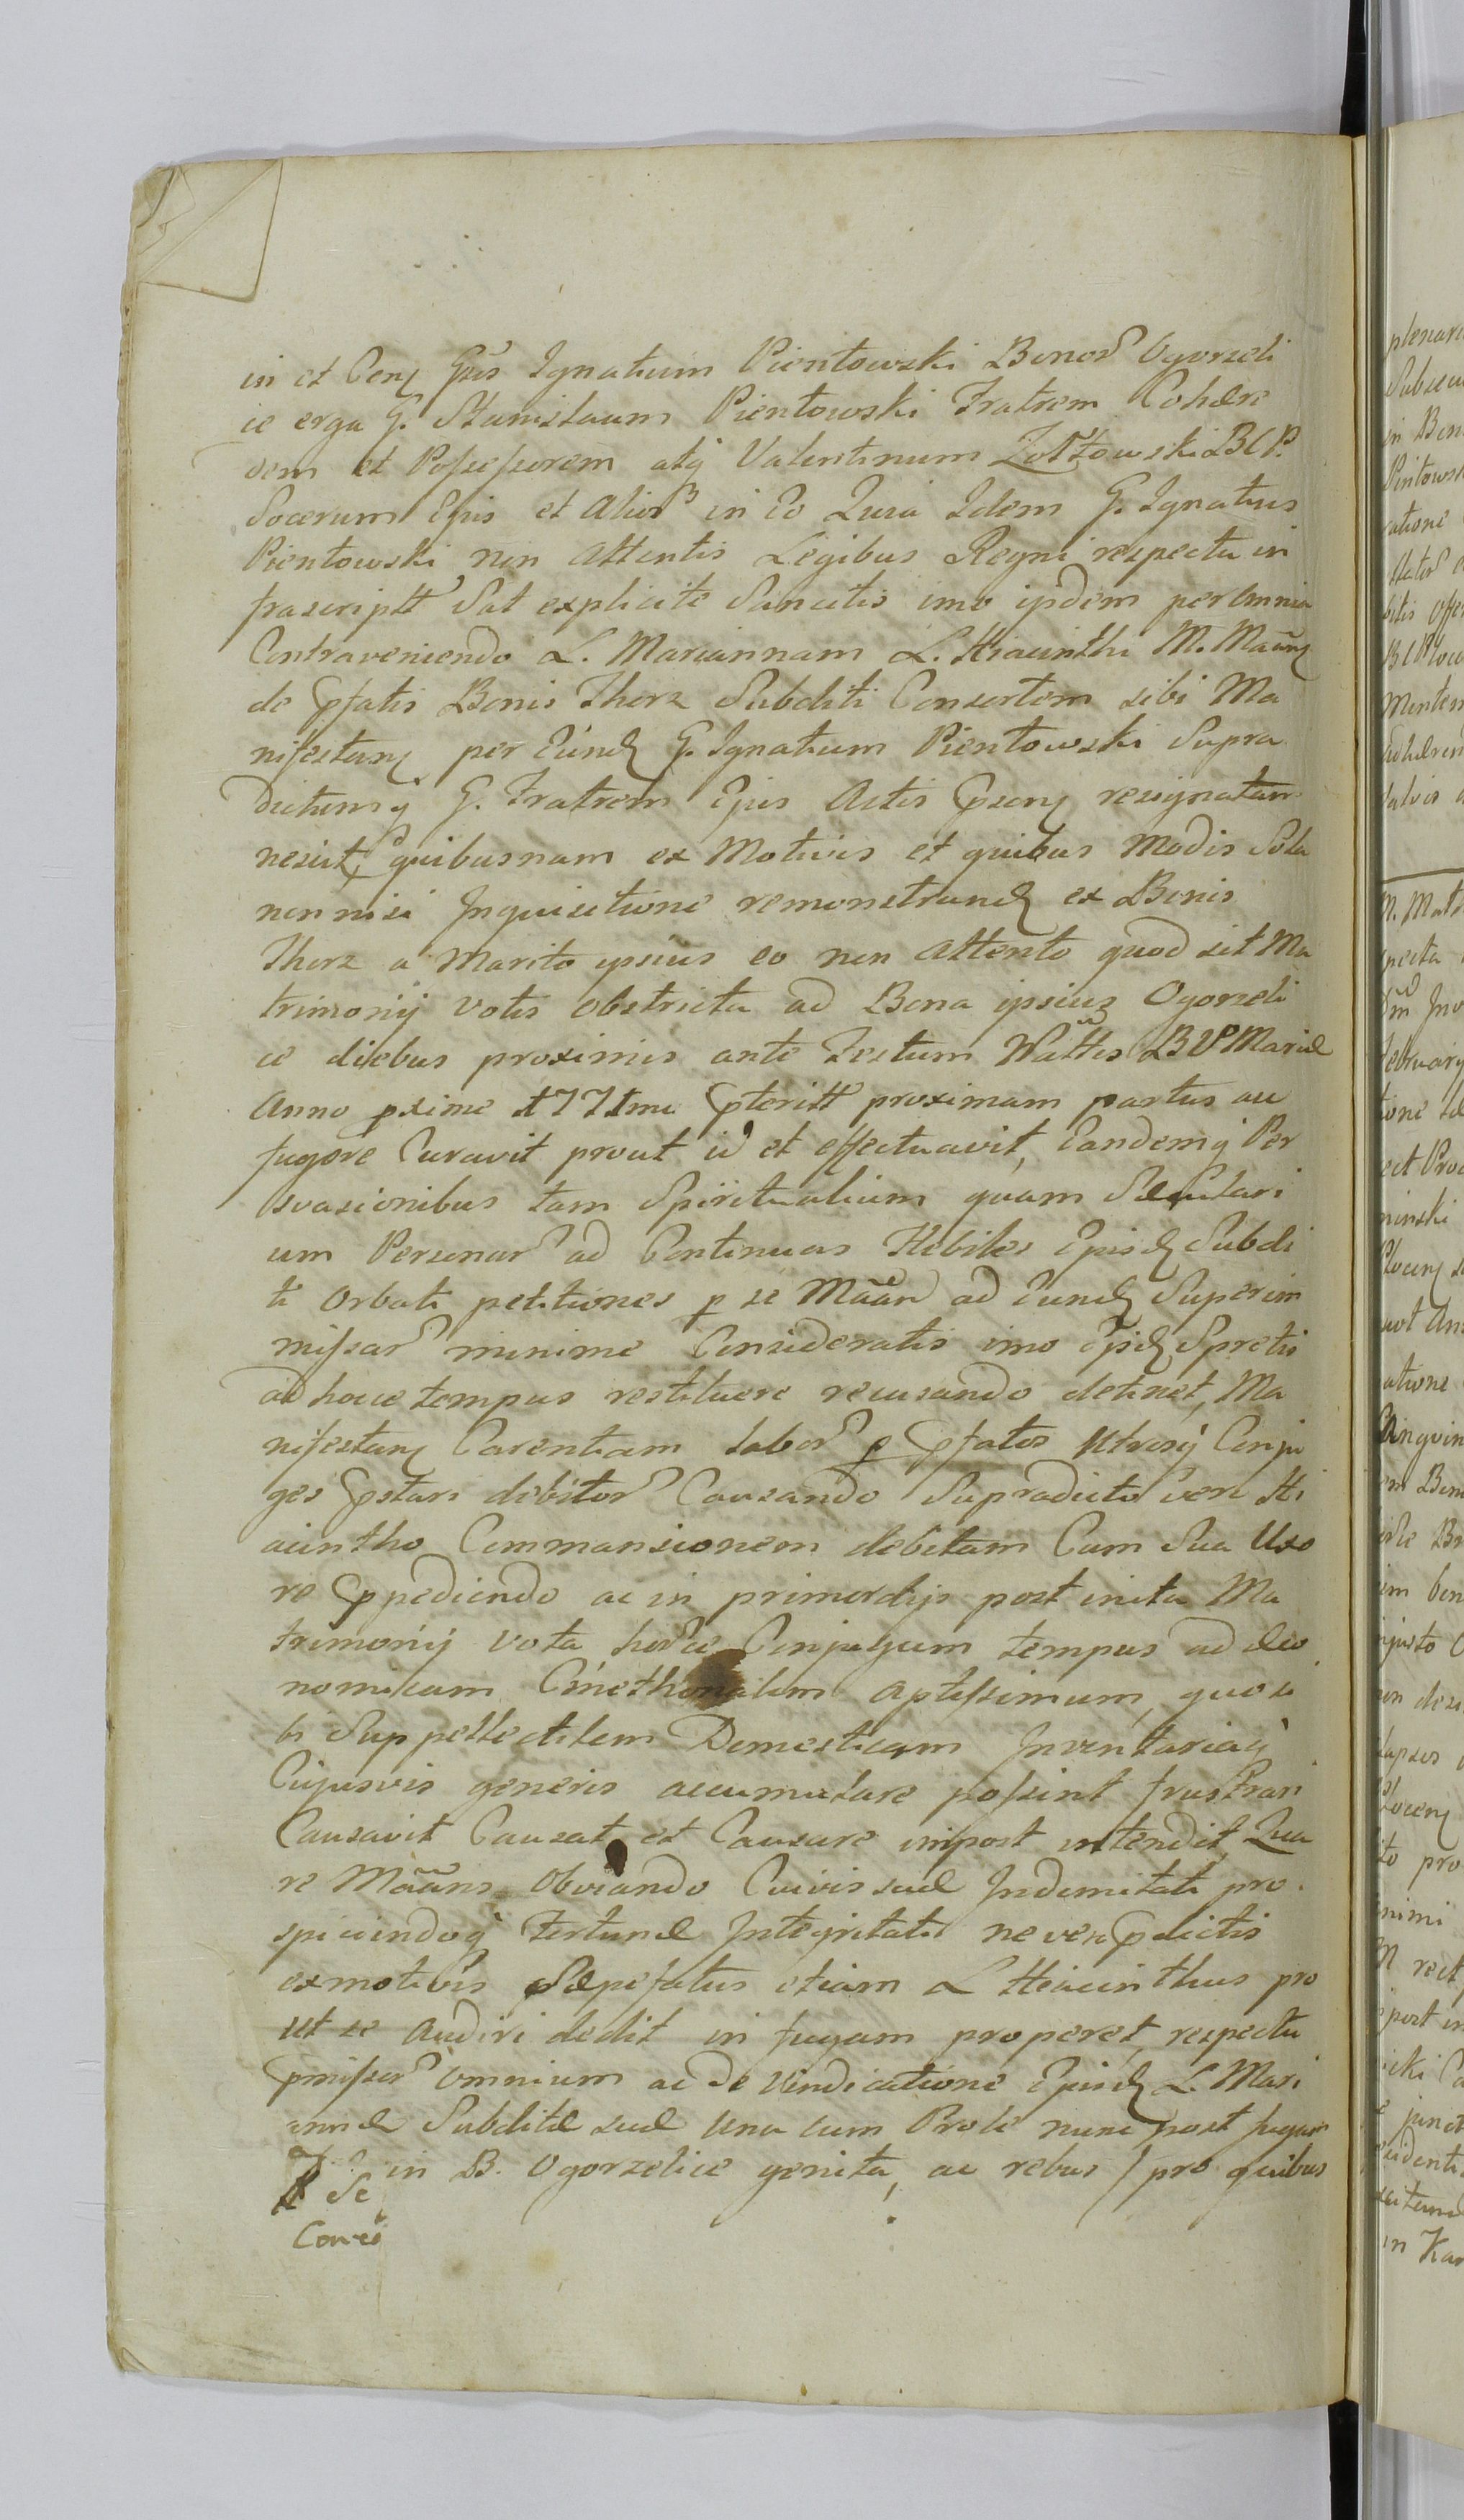 in et Conz Gsūs Ignatium Pientowski Bonoꝝ Ogorzeli
ce erga G. Stanislaum Pientowski Fratrem Cohære
dem et Possessorem atq̨ Valentinum Zołtowski BCP.
Socerum Ejus et Alioꝝ in Eo Quia Idem G. Ignatius
Pientowski non Attentis Legibus Regni respectu in
frascriptt Sat explicite Sancitis imo ijsdem per Omnia
Contraveniendo L. Mariannam L. Hiacinthi M. Maõnz
de Pfatis Bonis Thorz Subditi Consortem sibi Ma
nifestanz per Eund G. Ignatium Pientowski Supra
Dictumq̨ G. Fratrem Ejus Actis Psenz resignatam
nescit, quibusnam ex Motivis et quibus Modis Sola
non nisi Inquisitione remonstrand ex Bonis
Thorz a Marito ipsius eo non Attento quod sit Ma
trimonij votis obstricta ad Bona ipsius Ogorzeli
ce diebus proximis ante Festum Nattis BVMariæ
Anno pxime 1771mo Pteritt proximam partus au
fugere Curavit prout id et effectuavit, Eandemq̨ Per
svasionibus tam Spiritualium quam Sæculari
um Personarꝝ ad Continuas Flebiles Ejusd Subdi
ti Orbati petitiones p se Mããn ad Eund Superim
missarꝝ minime Consideratis imo Ipsd Spretis
ad hocce tempus restituere recusando detinet, Ma
nifestanz Carentiam laborꝝ p Pfatos Utrosq̨ Conju
ges Pstari debitorꝝ Causando Supradicto vero Hi
acintho Commansionem debitam Cum Sua Uxo
re Ppediendo ac in primordijs post inita Ma
trimonij vota horꝝce Conjugum tempus ad Oeco
nomicam Cmethonalem Aptissimum, quo si
bi Suppellectilem Domesticam Inventariaq̨
Cujusvis generis accumulare possint frustrari
Causavit Causat et Causare inpost intendit, Qua
re Mããns Obviando Cuivis suæ Indemnitati pro
spiciendoq̨ Fortunæ Integritati ne vero Pdictis
ex motivis Sæpefatus etiam L Hiacinthus pro
ut se Audiri dedit in fugam properet, respectu
Pmissorꝝ Omnium ac de Vindicatione Ejusd L. Mari
annæ Subditæ suæ Una cum Prole nunc post fugam
in B. Ogorzelice genita, ac rebus / pro quibus